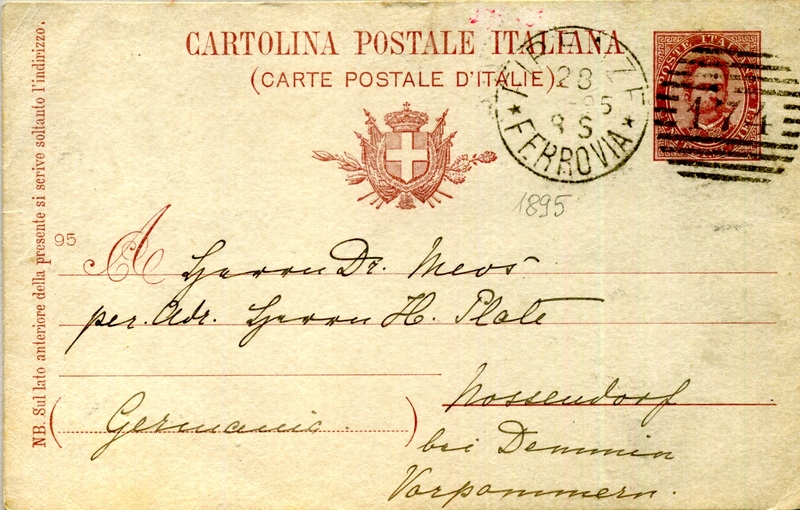 CARTOLINA POSTALE ITALIANA
(CARTE POSTALE D'ITALIE)
POSTE ITALIANE
FIRENZE
28
95
8 S
★ FERROVIA ★
174
1895
95
A Herrn Dr. Mevs
per. Adr. Herrn H. Plate
Nossendorf
(Germania.)
bei Demmin
Vorpommern.
NB. Sul lato anteriore della presente si scrive soltanto l'indirizzo.